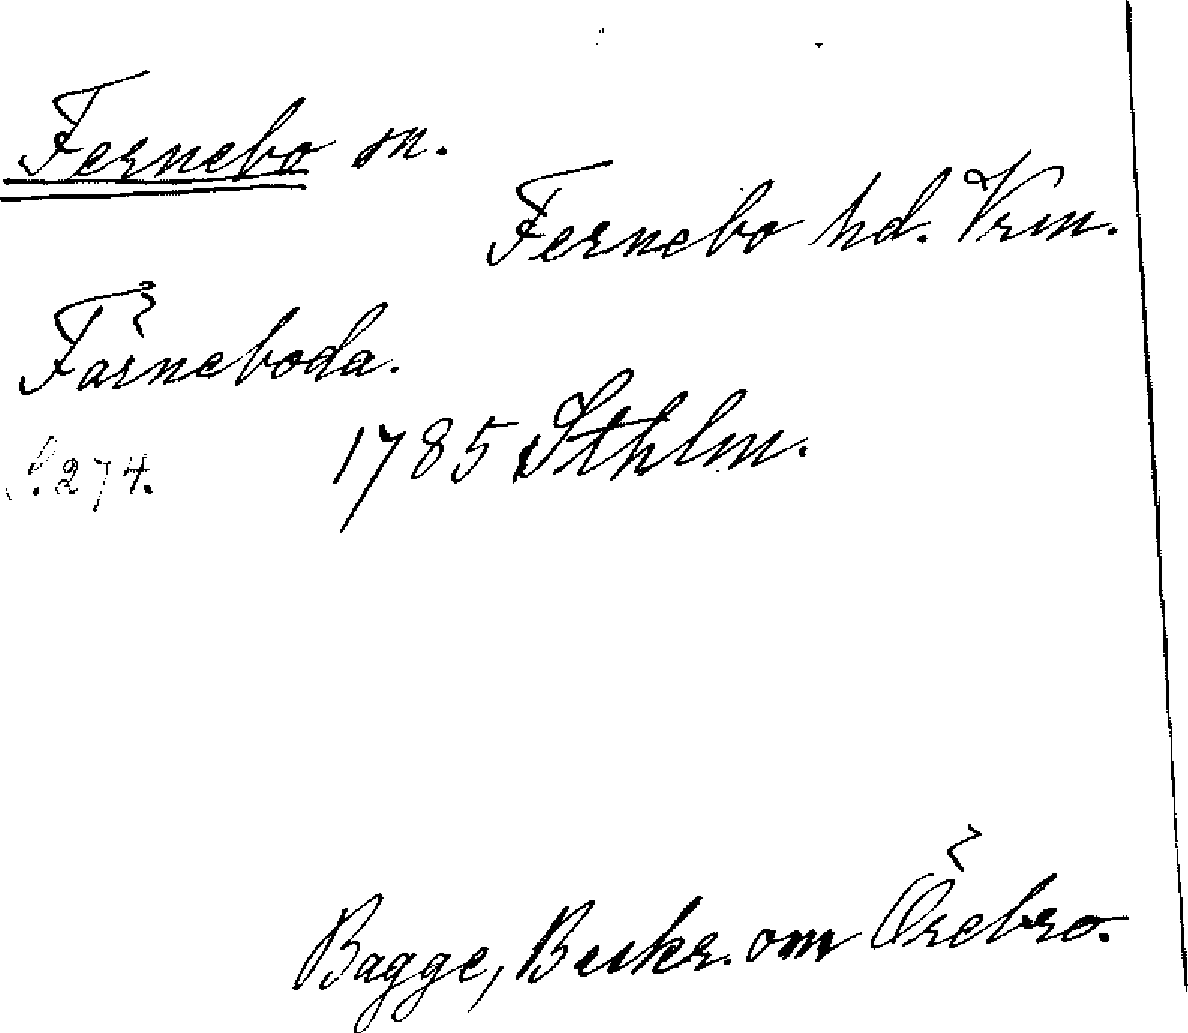 Fernebo sn.
Fernebo hd. Vrm.
Färneboda.
S. 274. 1785 Sthlm.
Bagge, Beskr. om Örebro.